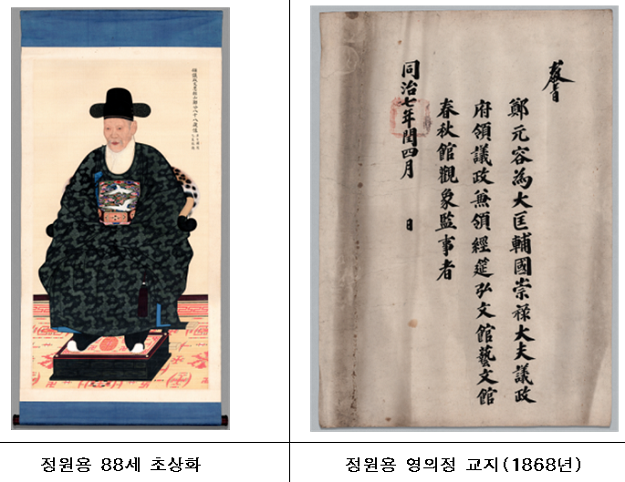 敎旨
鄭元容爲大匡輔國崇祿大夫議政
府領議政兼領經筵弘文館藝文館
春秋館觀象監事者
同治七年閏四月 日
정원용 88세 초상화
정원용 영의정 교지(1868년)